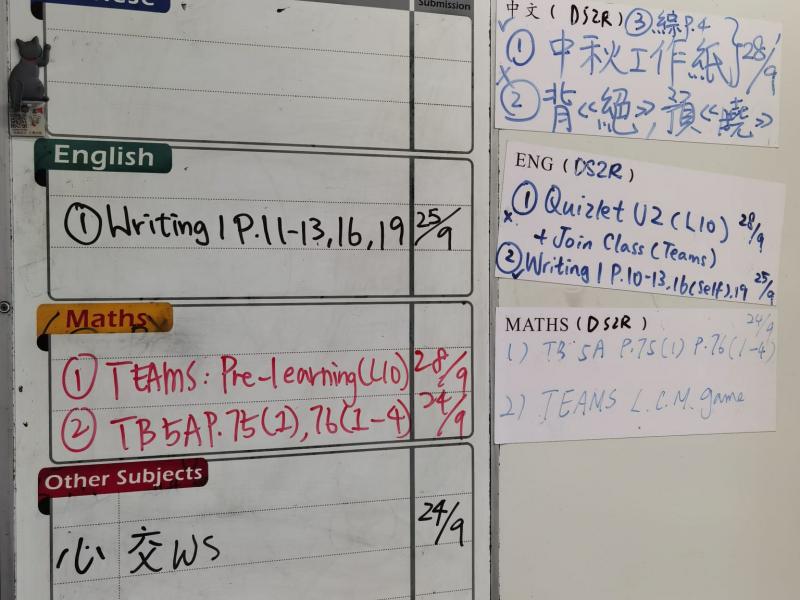 Submission
English
① Writing 1 P.11-13,16,19 25/9
Maths
① TEAMS: Pre-learning(L10) 28/9
② TB5A P.75(1),76(1-4) 24/9
Other Subjects
心交WS 24/9
中文 (DS2R) ③綜P.4
① 中秋工作紙 28/9
② 背《絕》,預《曉》
ENG (DS2R)
① Quizlet U2 (L10) 28/9
+ Join Class (Teams)
② Writing 1 P.10-13,16(self),19 25/9
MATHS (DS2R) 24/9
1) TB 5A P.75(1) P.76(1-4)
2) TEAMS L.C.M. game